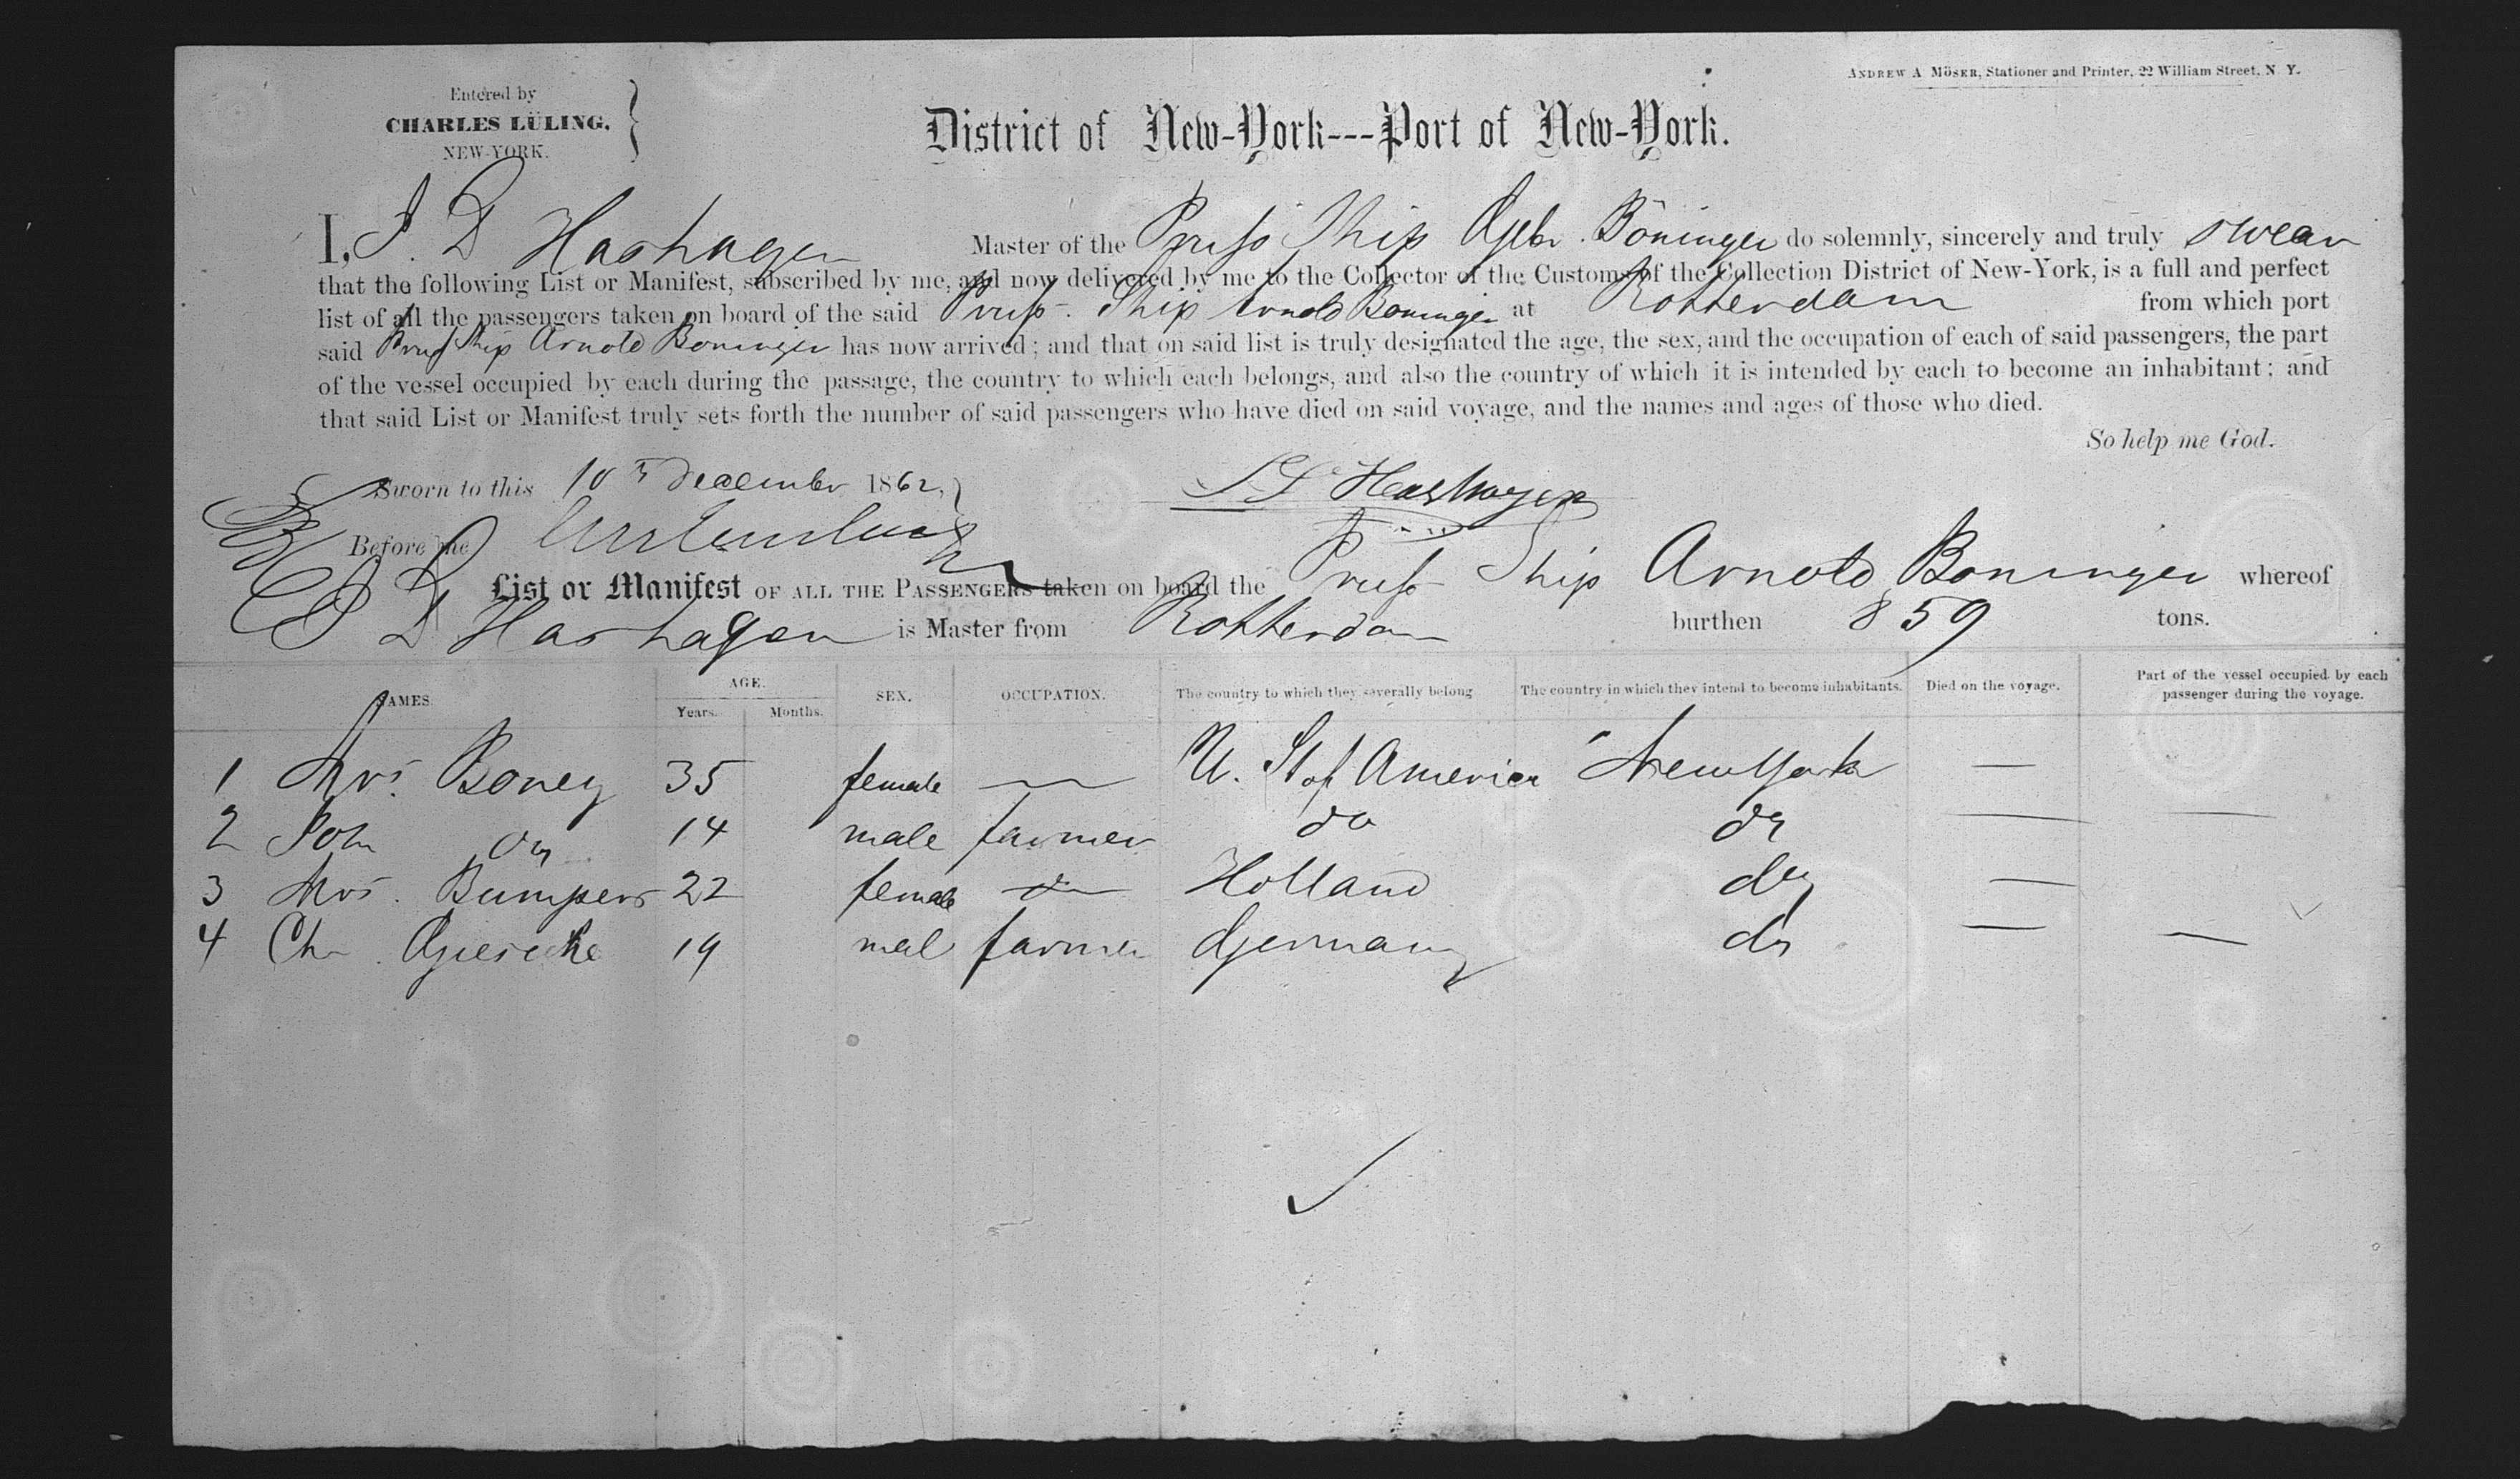 ANDREW A MÖSER, Stationer and Printer, 22 William Street, N. Y.
Entered by
CHARLES LÜLING,
NEW-YORK.
District of New-York---Port of New-York.
I, J. D Hashagen Master of the Pruss Ship Gebr. Böninger do solemnly, sincerely and truly swear
that the following List or Manifest, subscribed by me, and now delivered by me to the Collector of the Customs of the Collection District of New-York, is a full and perfect
list of all the passengers taken on board of the said Pruss. Ship Arnold Boninger at Rotterdam from which port
said Pruss Ship Arnold Boninger has now arrived; and that on said list is truly designated the age, the sex, and the occupation of each of said passengers, the part
of the vessel occupied by each during the passage, the country to which each belongs, and also the country of which it is intended by each to become an inhabitant; and
that said List or Manifest truly sets forth the number of said passengers who have died on said voyage, and the names and ages of those who died.
So help me God.
Sworn to this 10th December 1862,
Hashagen
Before me
List or Manifest OF ALL THE PASSENGERS taken on board the Pruss Ship Arnold Boninger whereof
J D Hashagen is Master from Rotterdam burthen 859 tons.
NAMES. AGE. SEX. OCCUPATION. The country to which they severally belong The country in which they intend to become inhabitants. Died on the voyage. Part of the vessel occupied by each passenger during the voyage.
Years. Months.
1 Mrs. Boney 35 female — U. St of America New York —
2 Joh do 14 male farmer do do — —
3 Mrs. Bumpers 22 female — Holland do —
4 Chr. Giesecke 19 mal farmer Germany do — —